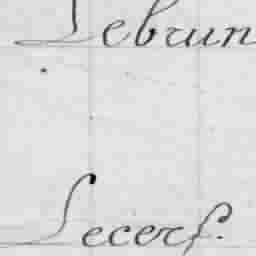 Lebrun
Lecerf.